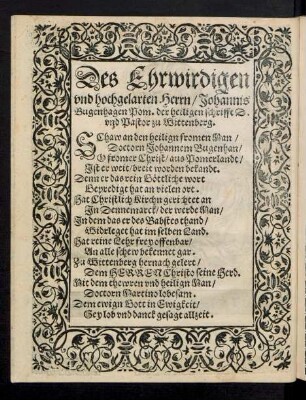 Des Ehrwirdigen
vnd hochgelarten Herrn / Johanns
Bugenhagen Pom. der heiligen schrifft D.
vnd Pastor zu Wittenberg.
Schaw an den heilign fromen Man /
Doctorn Johannem Bugenhan /
O fromer Christ / aus Pomerlandt /
Ist er weit / breit worden bekandt.
Denn er das rein Göttliche wort
Gepredigt hat an vielen ort.
Hat Christlich Kirchn gerichtet an
In Dennemarck / der werde Man /
In dem das er des Babstes thand /
Widrleget hat im selben Land.
Hat reine Lehr frey offenbar /
An alle schew bekennet gar.
Zu Wittenberg hernach gelert /
Dem HERREN Christo seine Herd.
Mit dem thewren vnd heilign Man /
Doctorn Martino lobesam.
Dem ewign Gott in Ewigkeit /
Sey lob vnd danck gesagt allzeit.